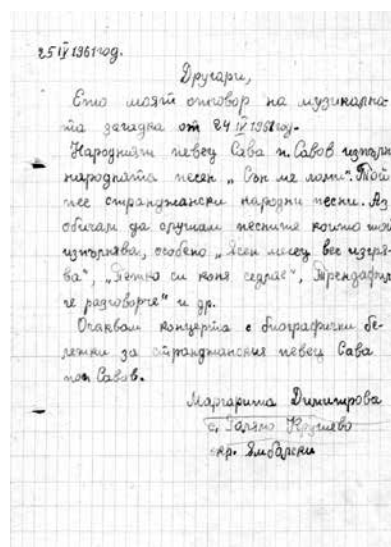 25 IX 1961 год.
Другари,
Ето моят отговор на музикална-
та загадка от 24 IX 1961 год.
Народният певец Сава п. Савов изпълн
народната песен „Сън ме ломи“. Той
пее странджански народни песни. Аз
обичам да слушам песните които той
изпълнява, особено „Ясен месец веч изгря-
ва“, „Петко си коня седлае“, Трендафил-
че разговорче“ и др.
Очаквам концерта с биографични бе-
лежки за странджанския певец Сава
поп Савов.
Маргарита Димитрова
с. Голямо Крушево
окр. Ямболски